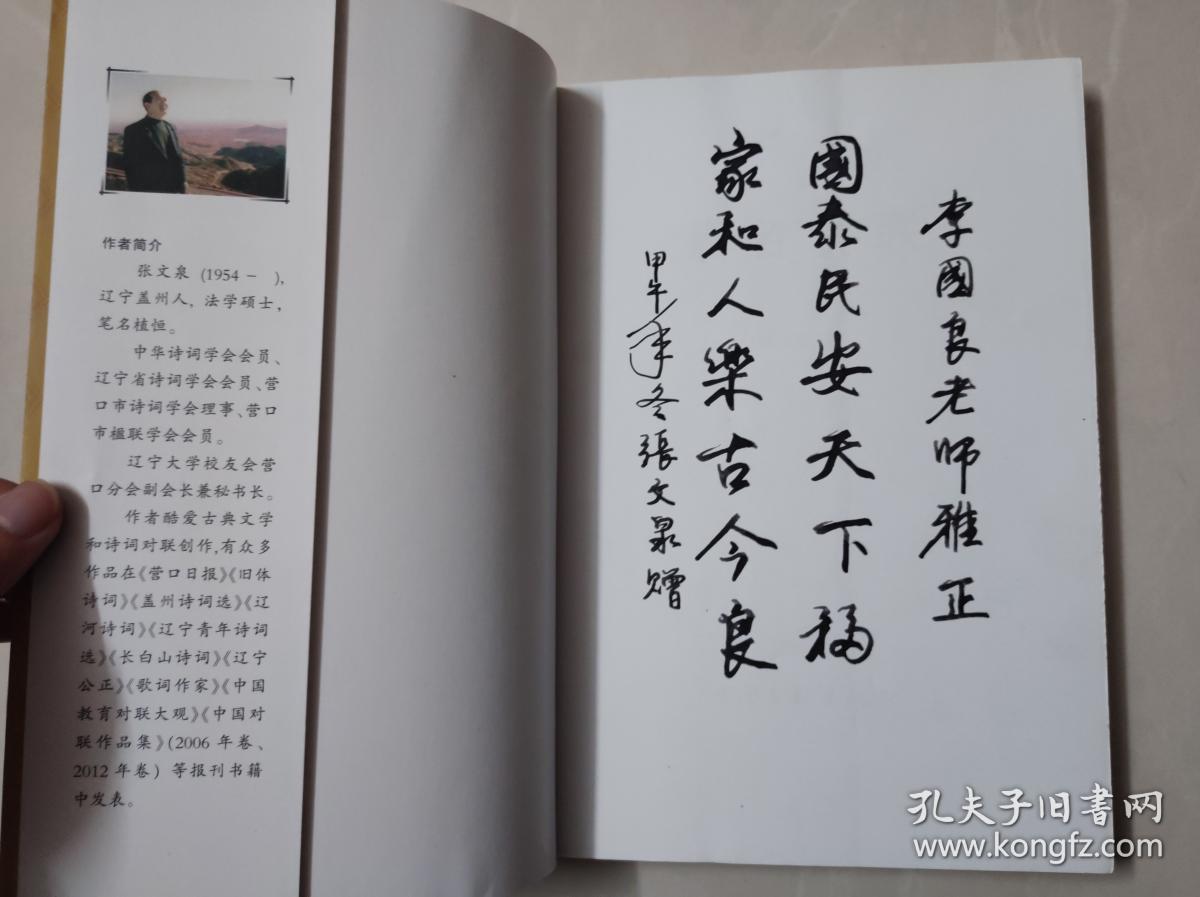 作者简介
张文泉(1954- ),
辽宁盖州人,法学硕士,
笔名植恒。
中华诗词学会会员、
辽宁省诗词学会会员、营
口市诗词学会理事、营口
市楹联学会会员。
辽宁大学校友会营
口分会副会长兼秘书长。
作者酷爱古典文学
和诗词对联创作,有众多
作品在《营口日报》《旧体
诗词》《盖州诗词选》《辽
河诗词》《辽宁青年诗词
选》《长白山诗词》《辽宁
公正》《歌词作家》《中国
教育对联大观》《中国对
联作品集》(2006年卷、
2012年卷)等报刊书籍
中发表。
李國良老师雅正
國泰民安天下福
家和人樂古今良
甲午年冬張文泉赠
孔夫子旧书网
www.kongfz.com